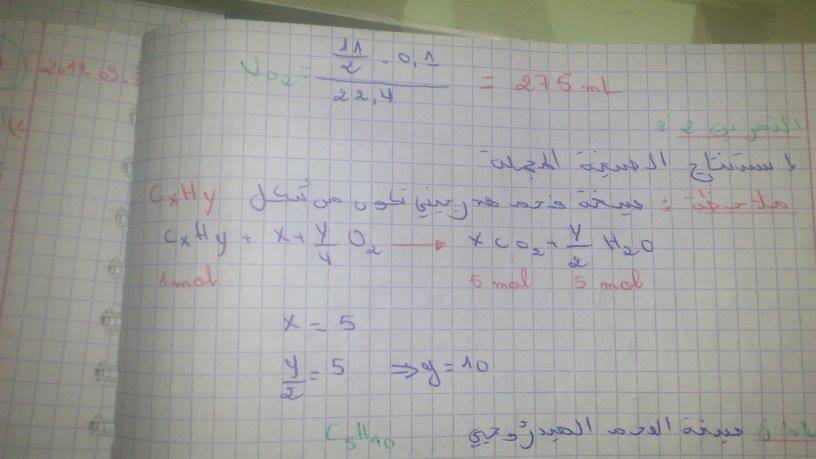 2014-09-
V O2 = (11/2 . 0,1) / 22,4 = 275 mL
التمرين 2 :
استنتاج الصيغة المجملة
ملاحظة : صيغة فحم هيدروجيني تكون من الشكل CxHy
CxHy + x+y/4 O2 → x CO2 + y/2 H2O
1 mol 5 mol 5 mol
x = 5
y/2 = 5 ⇒ y = 10
صيغة الفحم الهيدروجيني C5H10